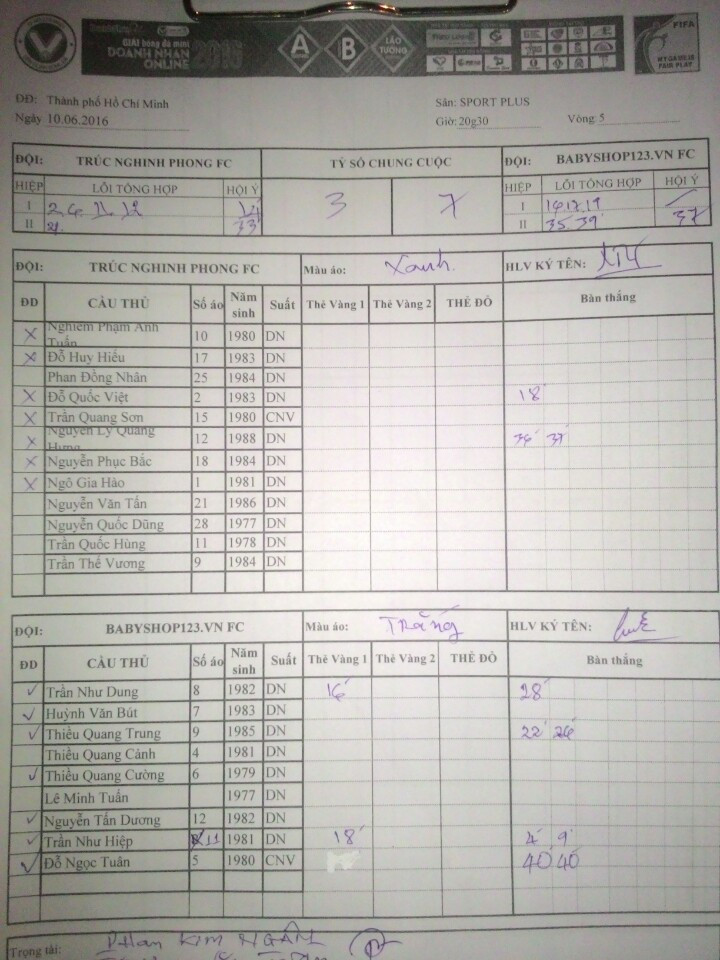 GIẢI bóng đá mini
DOANH NHÂN 2016
ONLINE
A B LÃO TƯỚNG
FIFA
MY GAME IS FAIR PLAY
ĐĐ: Thành phố Hồ Chí Minh Sân: SPORT PLUS
Ngày 10.06.2016 Giờ: 20g30 Vòng: 5
ĐỘI: TRÚC NGHINH PHONG FC TỶ SỐ CHUNG CUỘC ĐỘI: BABYSHOP123.VN FC
HIỆP LỖI TỔNG HỢP HỘI Ý 3 7 HIỆP LỖI TỔNG HỢP HỘI Ý
I I
II 33 II 35 39 37
ĐỘI: TRÚC NGHINH PHONG FC Màu áo: Xanh. HLV KÝ TÊN:
ĐD CẦU THỦ Số áo Năm sinh Suất Thẻ Vàng 1 Thẻ Vàng 2 THẺ ĐỎ Bàn thắng
X Nghiêm Phạm Anh Tuấn 10 1980 DN
X Đỗ Huy Hiếu 17 1983 DN
Phan Đồng Nhân 25 1984 DN
X Đỗ Quốc Việt 2 1983 DN 18'
X Trần Quang Sơn 15 1980 CNV
X Nguyễn Lý Quang Hưng 12 1988 DN 37'
X Nguyễn Phục Bắc 18 1984 DN
X Ngô Gia Hào 1 1981 DN
Nguyễn Văn Tấn 21 1986 DN
Nguyễn Quốc Dũng 28 1977 DN
Trần Quốc Hùng 11 1978 DN
Trần Thế Vương 9 1984 DN
ĐỘI: BABYSHOP123.VN FC Màu áo: Trắng HLV KÝ TÊN:
ĐD CẦU THỦ Số áo Năm sinh Suất Thẻ Vàng 1 Thẻ Vàng 2 THẺ ĐỎ Bàn thắng
✓ Trần Như Dung 8 1982 DN 16' 28'
✓ Huỳnh Văn Bút 7 1983 DN
✓ Thiều Quang Trung 9 1985 DN 22' 26'
Thiều Quang Cảnh 4 1981 DN
✓ Thiều Quang Cường 6 1979 DN
Lê Minh Tuấn 1977 DN
✓ Nguyễn Tấn Dương 12 1982 DN
✓ Trần Như Hiệp 11 1981 DN 18' 4' 9'
✓ Đỗ Ngọc Tuân 5 1980 CNV 40' 40'
Trọng tài: Phan KIM NGÂN